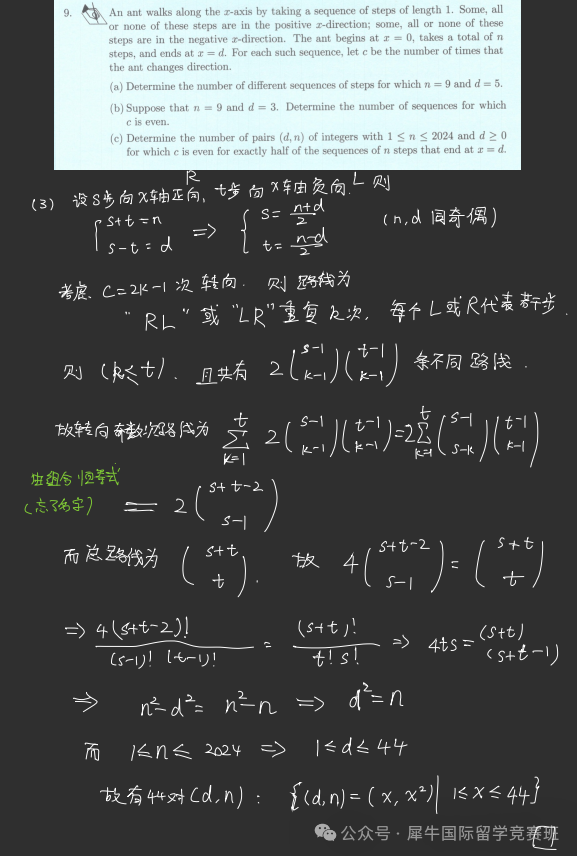 9. An ant walks along the x-axis by taking a sequence of steps of length 1. Some, all
or none of these steps are in the positive x-direction; some, all or none of these
steps are in the negative x-direction. The ant begins at x = 0, takes a total of n
steps, and ends at x = d. For each such sequence, let c be the number of times that
the ant changes direction.
(a) Determine the number of different sequences of steps for which n = 9 and d = 5.
(b) Suppose that n = 9 and d = 3. Determine the number of sequences for which
c is even.
(c) Determine the number of pairs (d, n) of integers with 1 ≤ n ≤ 2024 and d ≥ 0
for which c is even for exactly half of the sequences of n steps that end at x = d.
(3) 设 s步向x轴正向 R, t步向x轴负向 L 则
{ s+t=n, s-t=d => { s = (n+d)/2, t = (n-d)/2 (n,d 同奇偶)
考虑 C=2k-1 次转向. 则路线为
"RL" 或 "LR" 重复k次, 每个L或R代表若干步.
则 (k≤t). 且共有 2 (s-1 k-1)(t-1 k-1) 条不同路线.
故转向奇数次路线为 t∑k=1 2 (s-1 k-1)(t-1 k-1) = 2 t∑k=1 (s-1 s-k)(t-1 k-1)
由组合恒等式
(忘了名字) = 2 (s+t-2 s-1)
而总路线为 (s+t t). 故 4 (s+t-2 s-1) = (s+t t)
=> 4(s+t-2)! / (s-1)! (t-1)! = (s+t)! / t! s! => 4ts = (s+t)(s+t-1)
=> n²-d² = n²-n => d²=n
而 1≤n≤2024 => 1≤d≤44
故有44对(d,n): {(d,n)=(x,x²)| 1≤x≤44}
公众号 · 犀牛国际留学竞赛班